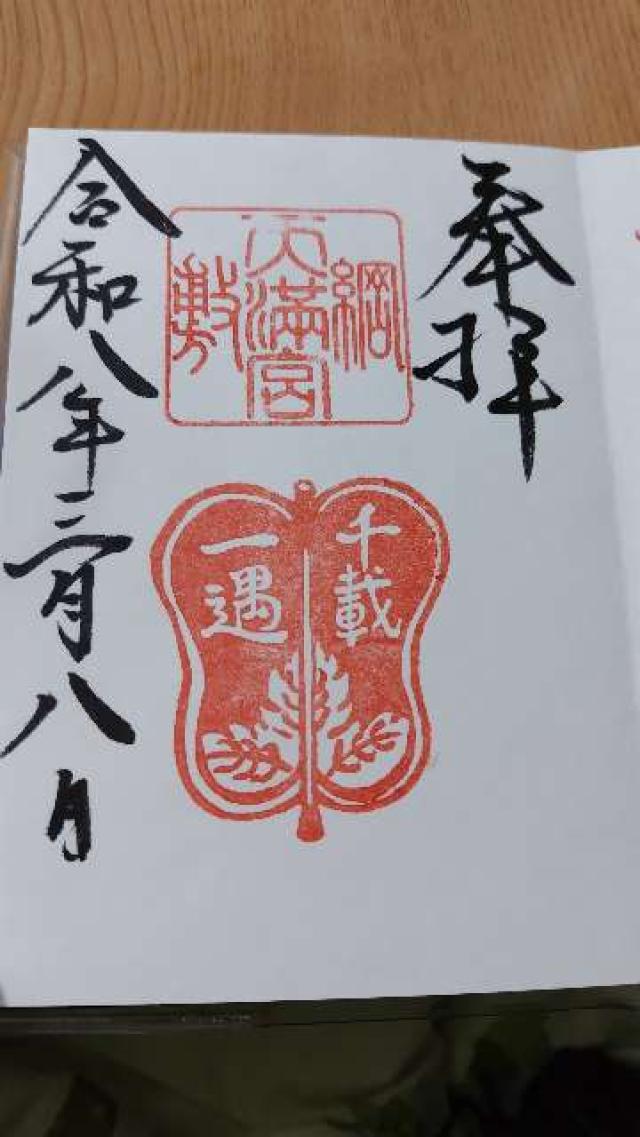 奉拝
綱
天満宮
敷
千載
一遇
令和八年三月八月